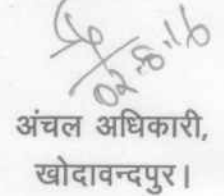 02.8.16
अंचल अधिकारी,
खोदावन्दपुर।